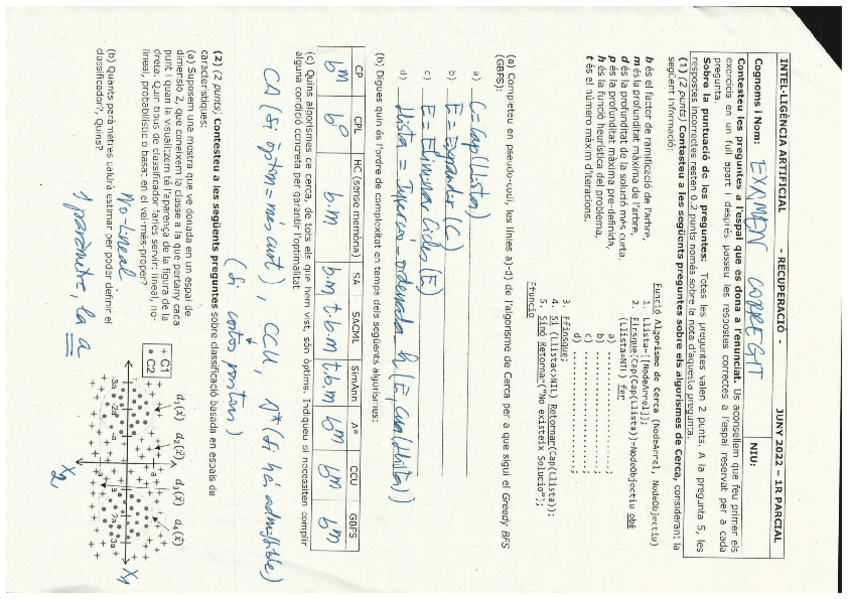 INTEL·LIGÈNCIA ARTIFICIAL - RECUPERACIÓ - JUNY 2022 – 1R PARCIAL
Cognoms i Nom: EXAMEN CORREGIT NIU:
Contesteu les preguntes a l'espai que es dona a l'enunciat. Us aconsellem que feu primer els
exercicis en un full apart i després passeu les respostes correctes a l'espai reservat per a cada
pregunta
Sobre la puntuació de les preguntes: Totes les preguntes valen 2 punts. A la pregunta 5, les
respostes incorrectes resten 0.2 punts només sobre la nota d'aquesta pregunta.
(1) (2 Punts) Contesteu a les següents preguntes sobre els algorismes de Cerca, considerant la
següent informació:
b és el factor de ramificació de l'arbre,
m és la profunditat màxima de l'arbre,
d és la profunditat de la solució més curta,
p és la profunditat màxima pre-definida,
h és la funció heurística del problema,
t és el número màxim d'iteracions.
Funció Algorisme de Cerca (NodeArrel, NodeObjectiu)
1. Llista=[[NodeArrel]];
2. Finsque(Cap(Cap(Llista))=NodeObjectiu obé
(Llista=NIL) fer
a) ...............;
b) ...............;
c) ...............;
d) ...............;
3. Ffinsque;
4. Si (Llista<>NIL) Retornar(Cap(Llista));
5. Sinó Retornar("No existeix Solucio");
Ffuncio
(a) Completeu en pseudo-codi, les línies a)-d) de l'algorisme de Cerca per a que sigui el Greedy BFS
(GBFS):
a) C=Cap(Llista)
b) E=Expandir(C)
c) E=Eliminar Cicles(E)
d) Llista = Inserció-ordenada-h(E, Cua(Llista))
(b) Digues quin és l'ordre de complexitat en temps dels següents algorismes:
CP CPL HC (sense memòria) SA SACML SimAnn A* CCU GBFS
b^m b^p b·m b·m t·b·m t·b·m b^m b^m b^m
(c) Quins algorismes de cerca, de tots els que hem vist, són òptims. Indiqueu si necessiten complir
alguna condició concreta per garantir l'optimalitat
CA (Si òptim=més curt), CCU, A* (Si h és admisible)
(Si costos positius)
(2) (2 punts) Contesteu a les següents preguntes sobre classificació basada en espais de
característiques:
(a) Suposem una mostra que ve donada en un espai de
dimensió 2, que coneixem la classe a la que pertany cada
punt i quan la visualitzem té l'aparença de la figura de la
dreta. Quin tipus de classificador faries servir: lineal, no-
lineal, probabilístic o basat en el veí-més-proper?
No-Lineal
(b) Quants paràmetres caldrà estimar per poder definir el
classificador?, Quins?
1 paràmetre, la a
+ C1
• C2
d1(x) d2(x) d3(x) d4(x)
-3a -2a -a a 2a 3a
X1
X2